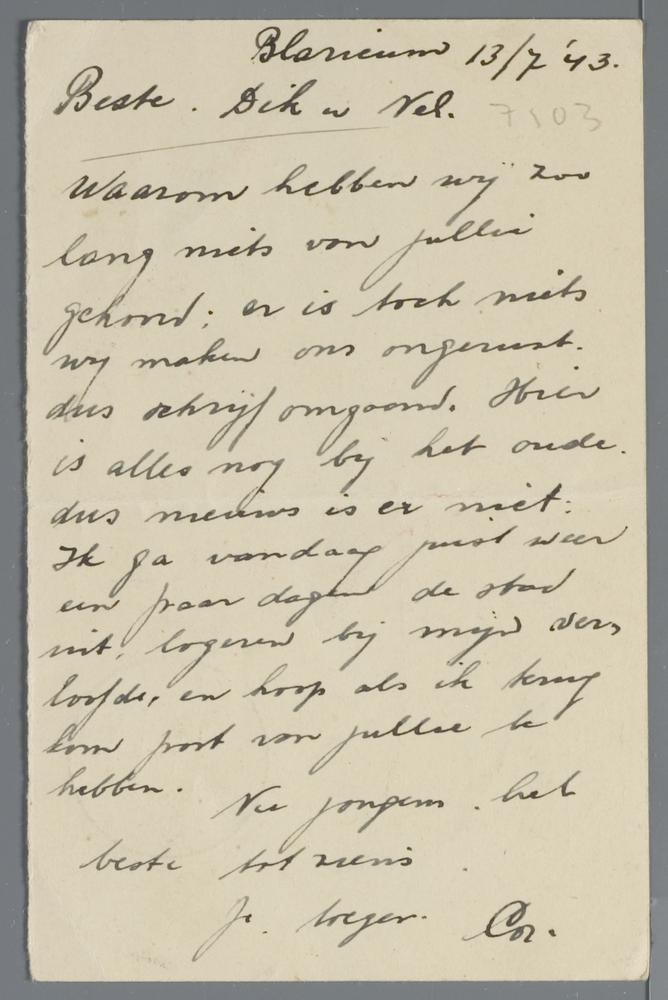 Blaricum 13/7 '43.
Beste. Dik en Nel.
7503
Waarom hebben wij zoo
lang niets van jullie
gehoord; er is toch niets
wij maken ons ongerust.
dus schrijf omgaand. Hier
is alles nog bij het oude.
dus nieuws is er niet.
Ik ga vandaag juist weer
een paar dagen de stad
uit, logeren bij mijn ver,
loofde, en hoop als ik terug
kom post van jullie te
hebben.
Nu jongens. het
beste tot ziens.
Je. Cor.